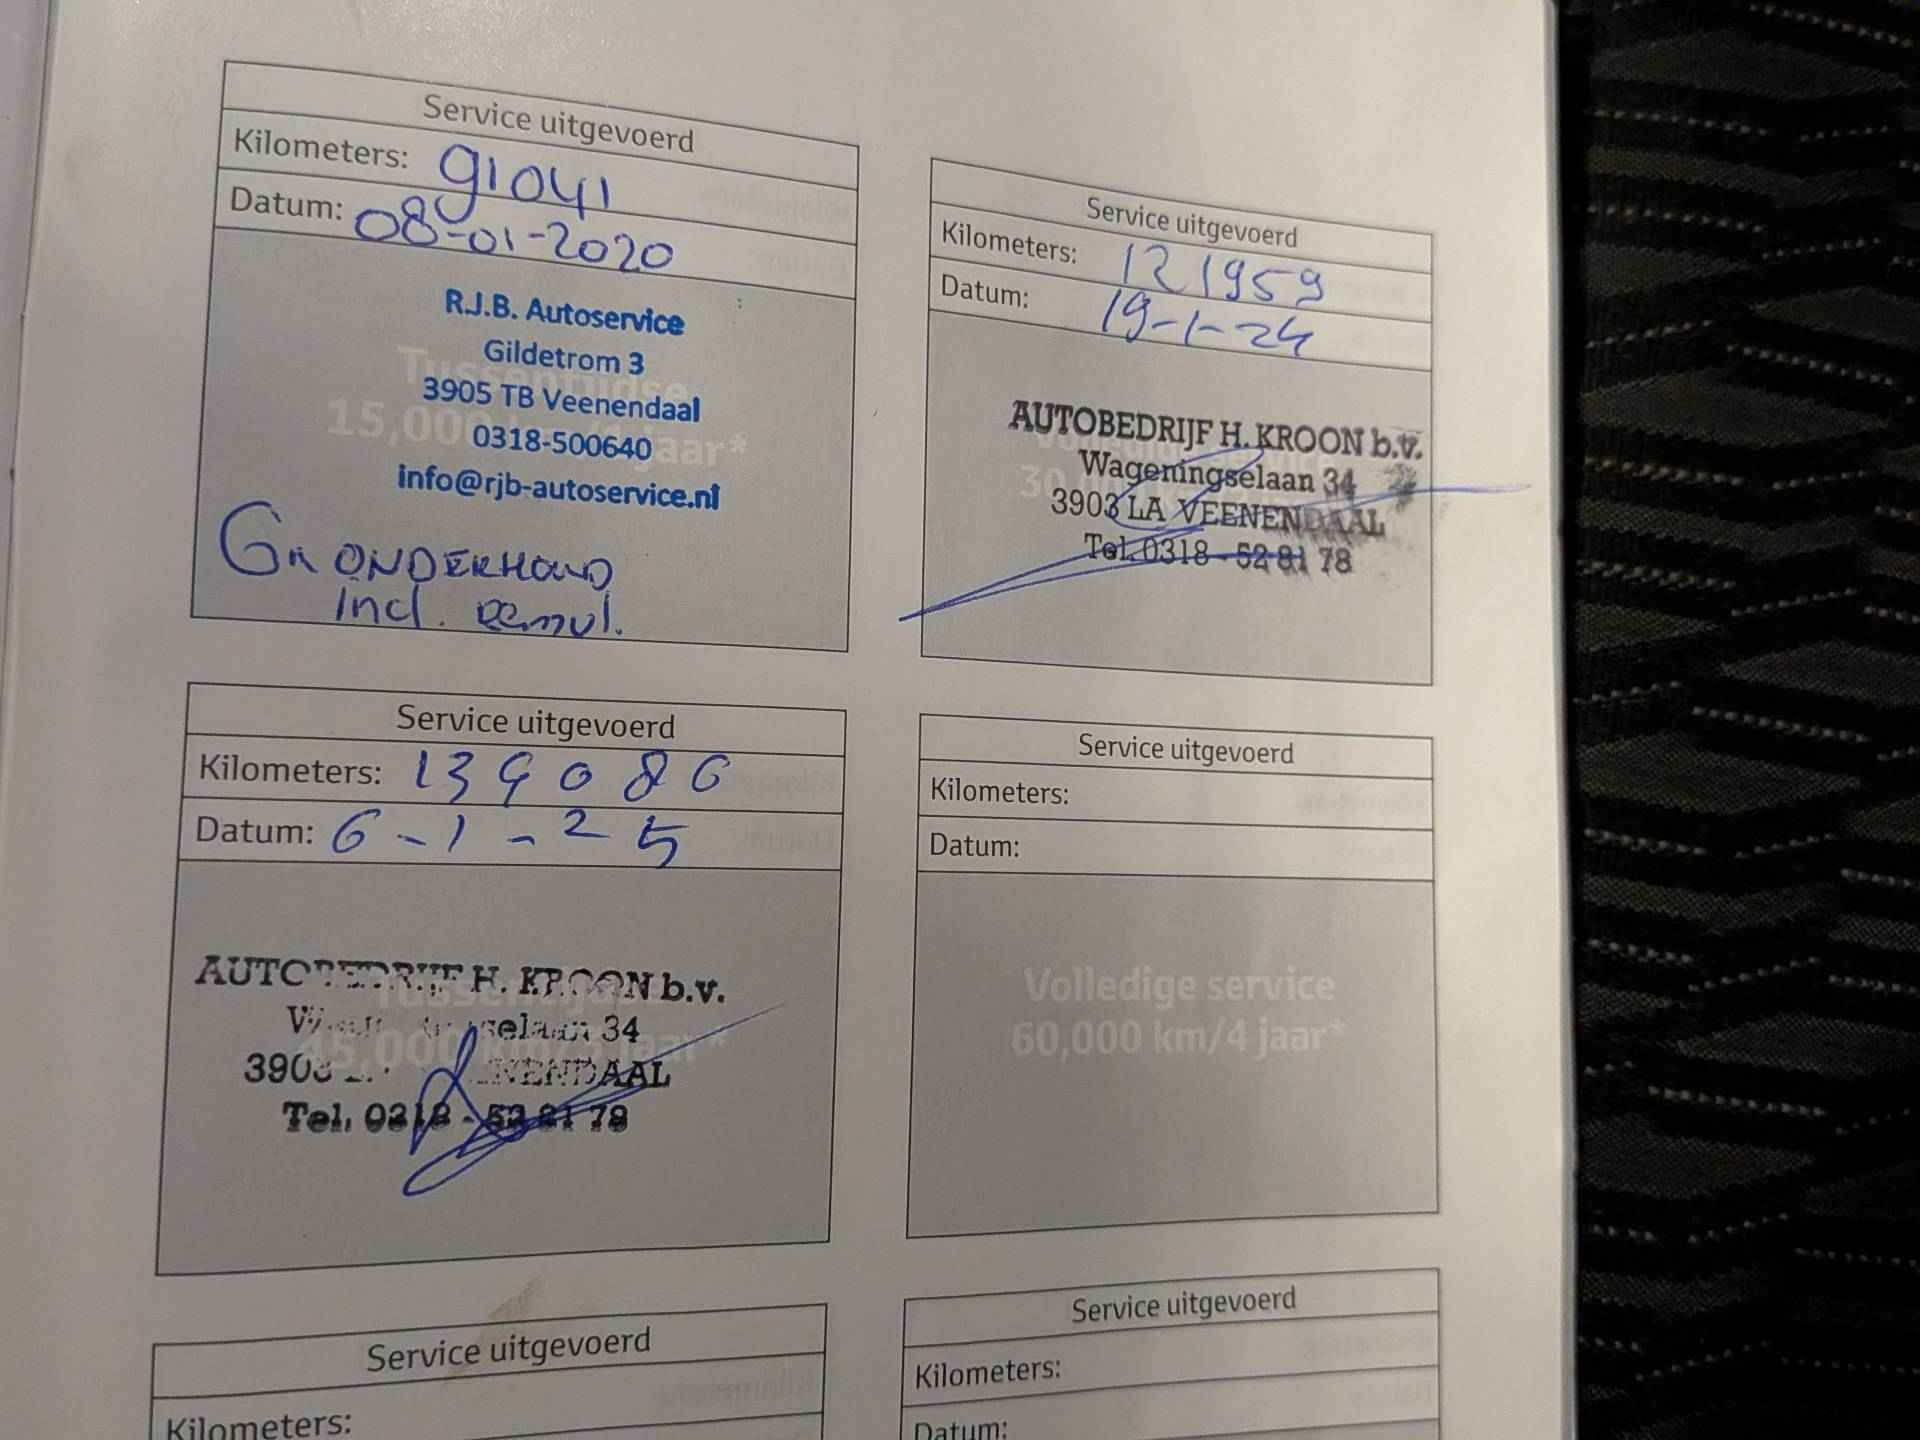 Service uitgevoerd
Kilometers: 91041
Datum: 08-01-2020
R.J.B. Autoservice
Gildetrom 3
3905 TB Veenendaal
0318-500640
info@rjb-autoservice.nl
Tussentijdse
15,000 km/1 jaar*
GR ONDERHOUD
incl. REMVL.
Service uitgevoerd
Kilometers: 121959
Datum: 19-1-24
AUTOBEDRIJF H. KROON b.v.
Wageningselaan 34
3903 LA VEENENDAAL
Tel. 0318 - 52 81 78
30,000
Service uitgevoerd
Kilometers: 139080
Datum: 6-1-25
AUTOBEDRIJF H. KROON b.v.
Wageningselaan 34
3903 LA VEENENDAAL
Tel. 0318 - 52 81 78
Tussentijdse
45,000 km/3 jaar*
Service uitgevoerd
Kilometers:
Datum:
Volledige service
60,000 km/4 jaar*
Service uitgevoerd
Kilometers:
Service uitgevoerd
Kilometers:
Datum: